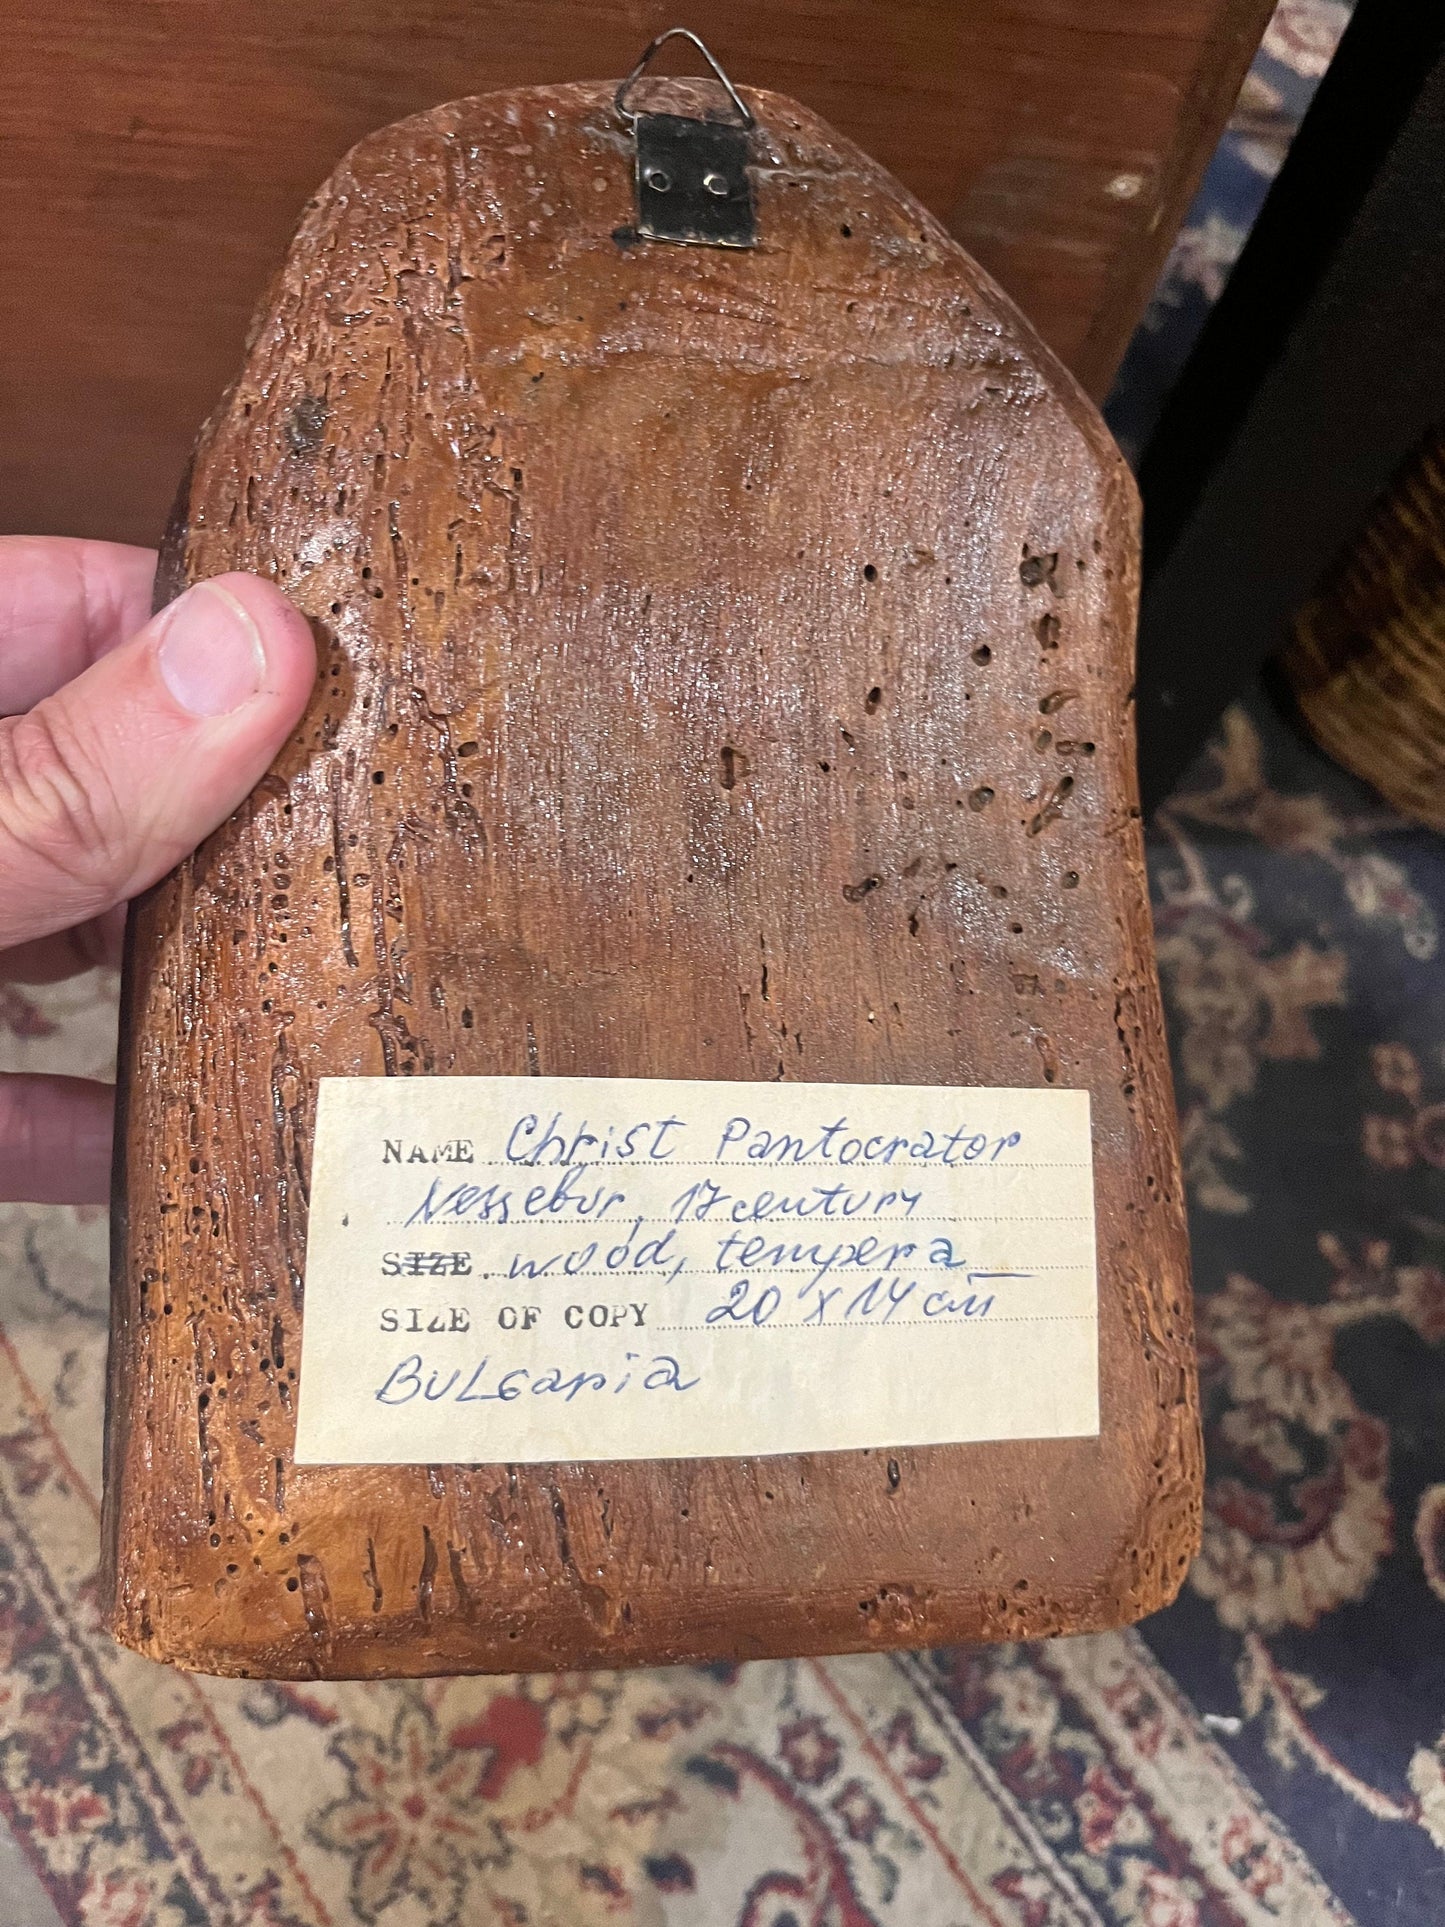 NAME Christ Pantocrator
Nessebur, 17 century
SIZE. wood, tempera
SIZE OF COPY 20 x 14 cm
BULGaria